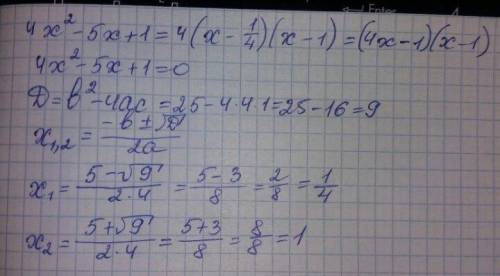 4x² - 5x + 1 = 4(x - 1/4)(x - 1) = (4x - 1)(x - 1)
4x² - 5x + 1 = 0
D = b² - 4ac = 25 - 4·4·1 = 25 - 16 = 9
x₁,₂ = (-b ± √D)/2a
x₁ = (5 - √9)/(2·4) = (5 - 3)/8 = 2/8 = 1/4
x₂ = (5 + √9)/(2·4) = (5 + 3)/8 = 8/8 = 1